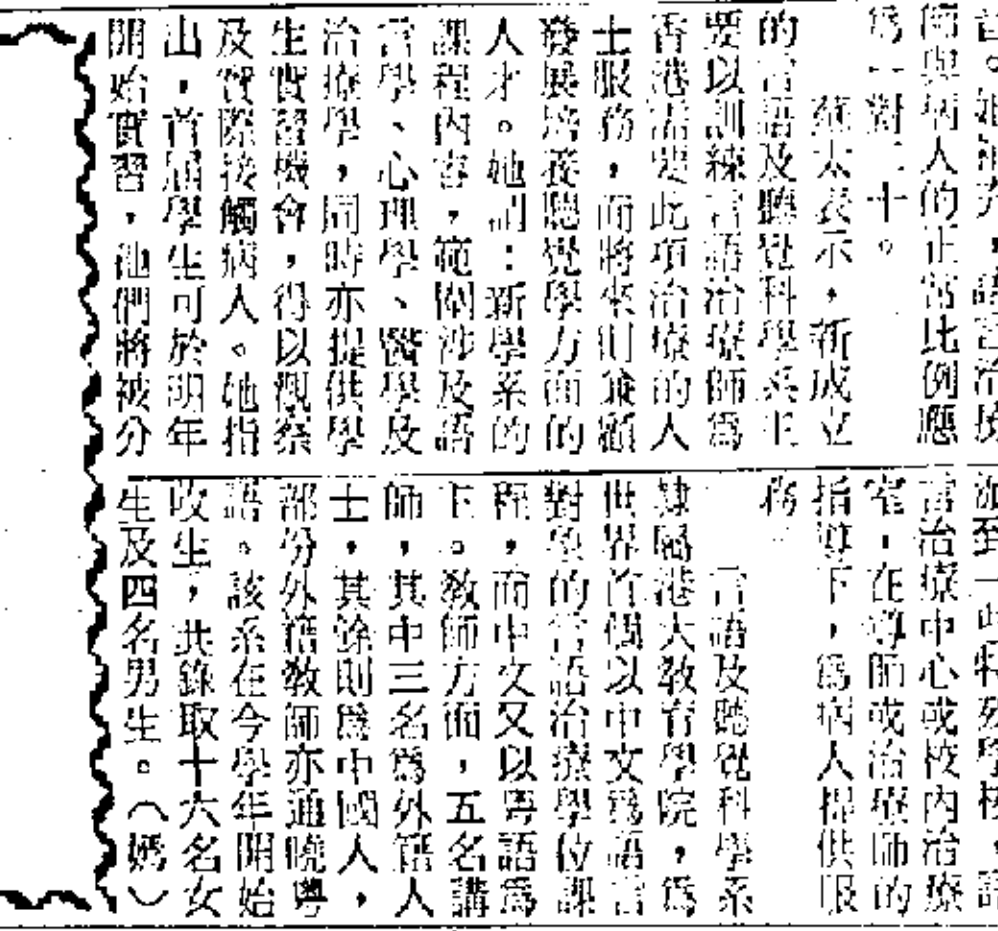 言。她補充，語言治療
師與病人的正常比例應
爲一對二十。
蘇太表示，新成立
的言語及聽覺科學系主
要以訓練言語治療師爲
香港需要此項治療的人
士服務，而將來則兼顧
發展培養聽覺學方面的
人才。她謂：新學系的
課程內容，範圍涉及語
言學、心理學、醫學及
治療學，同時亦提供學
生實習機會，得以觀察
及實際接觸病人。她指
出，首屆學生可於明年
開始實習，他們將被分
派到一些特殊學校，語
言治療中心或校內治療
室，在導師或治療師的
指導下，爲病人提供服
務。
言語及聽覺科學系
隸屬港大教育學院，爲
世界首個以中文爲語言
對象的言語治療學位課
程，而中文又以粤語爲
主。教師方面，五名講
師，其中三名爲外籍人
士，其餘則爲中國人，
部份外籍教師亦通曉粤
語。該系在今學年開始
收生，共錄取十六名女
生及四名男生。（嫣）